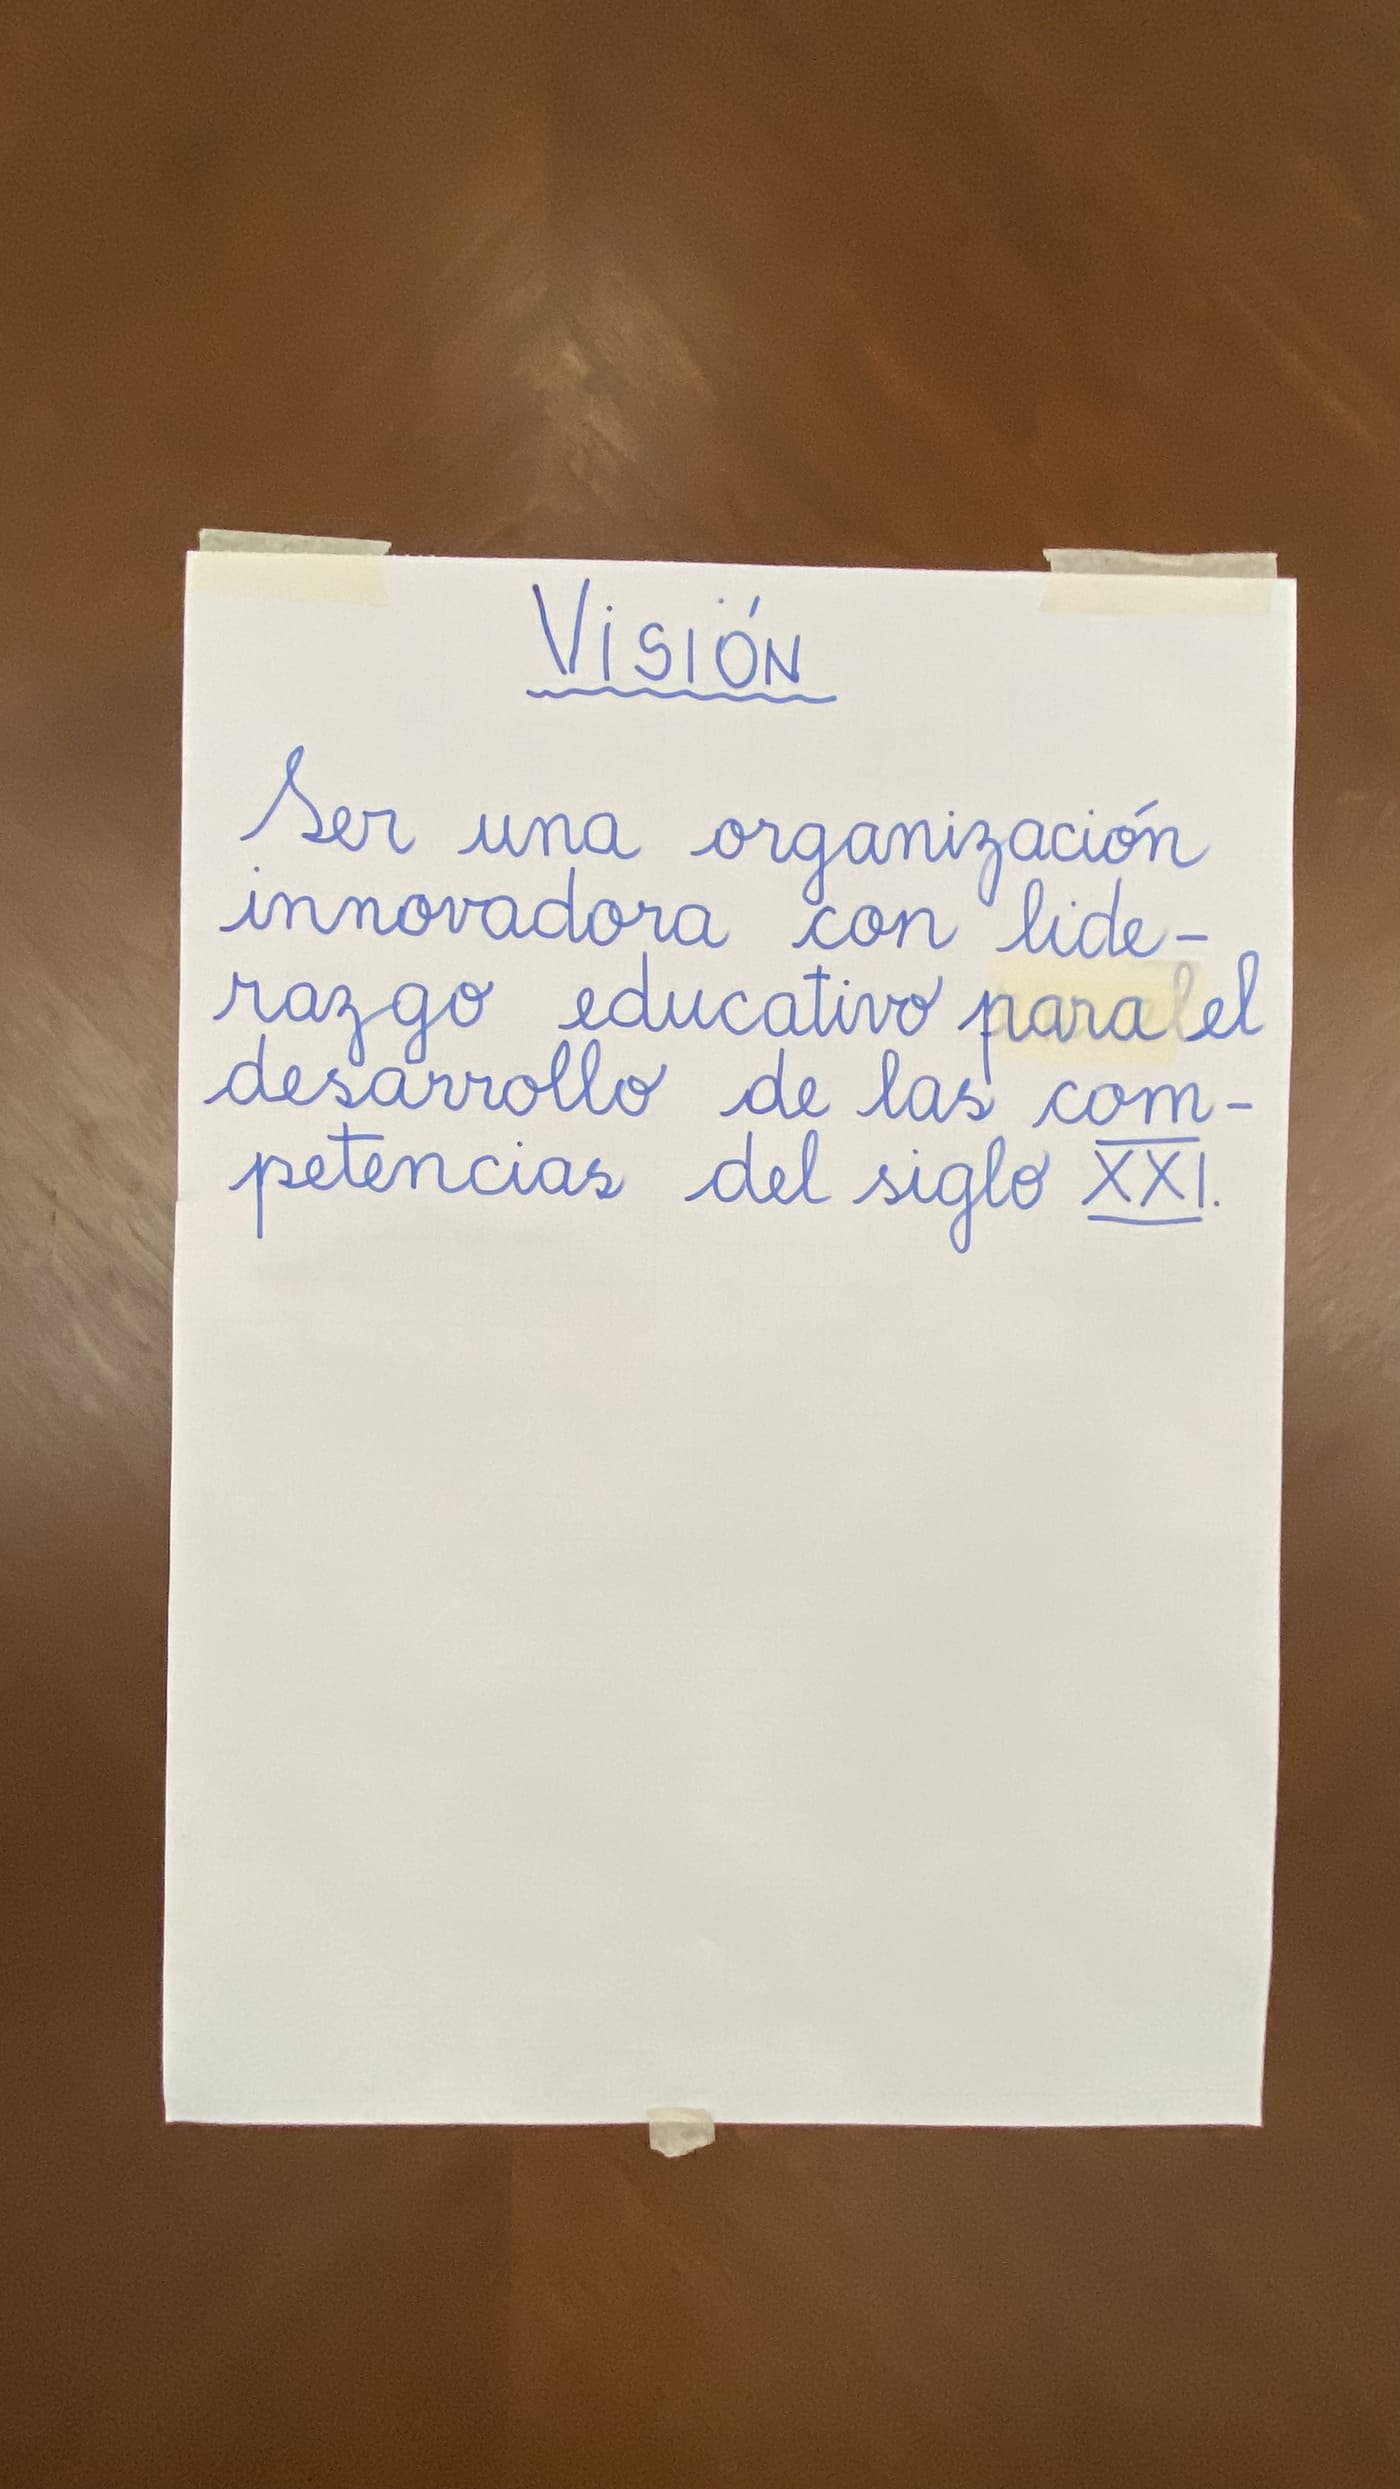 VisiÓN
Ser una organización
innovadora con lide-
razgo educativo para el
desarrollo de las com-
petencias del siglo XXI.